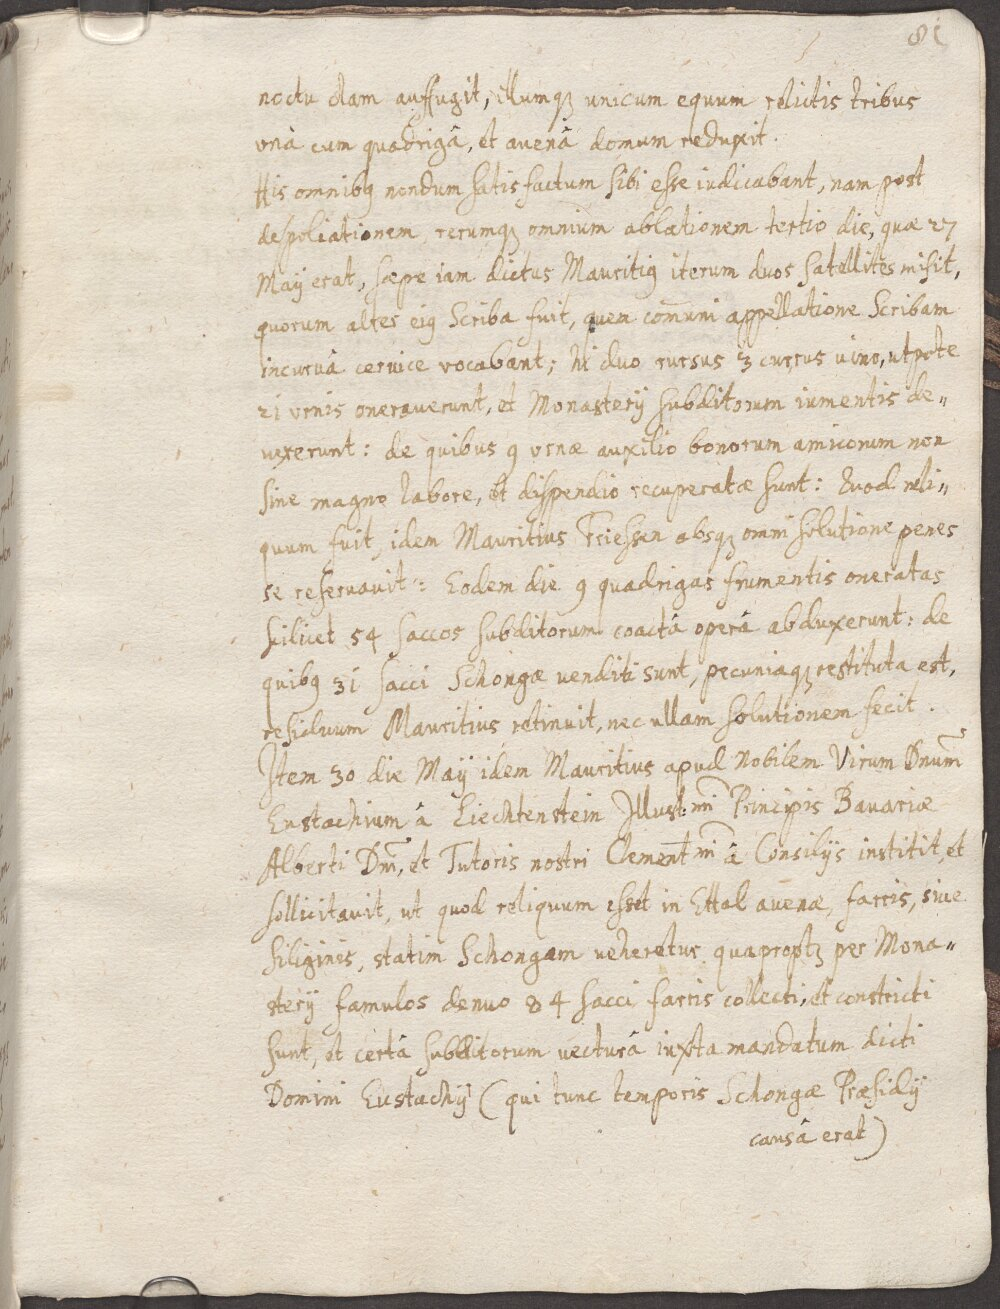 81
noctu clam auffugit, illumqꝫ unicum equum relictis tribus
vnà cum quadrigâ, et auenâ domum reduxit.
His omnibꝯ nondum satisfactum sibi esse iudicabant, nam post
despoliationem, rerumqꝫ omnium ablationem tertio die, quæ 27
Maÿ erat, sæpe iam dictus Mauritiꝯ iterum duos satellites misit,
quorum alter eiꝯ Scriba fuit, quem com̄uni appellatione Scribam
incuruâ ceruice vocabant; hi duo rursus 3 currus vino, utpote
21 vrnis onerauerunt, et Monasterÿ subditorum iumentis de„
uexerunt: de quibus 9 vrnæ auxilio bonorum amicorum non
sine magno labore, et dispendio recuperatæ sunt: Quod reli„
quum fuit, idem Mauritius Friessen absqꝫ omni solutione penes
se reseruauit: Eodem die 9 quadrigas frumentis oneratas
scilicet 54 saccos subditorum coactâ operâ abduxerunt: de
quibꝯ 31 sacci Schongæ uenditi sunt, pecuniaqꝫ restituta est,
residuum Mauritius retinuit, nec ullam solutionem fecit.
Item 30 die Maÿ idem Mauritius apud Nobilem Virum Dnūm
Eustachium â Liechtenstein Illustm̄i Principis Bauariæ
Alberti Dm̄i, et Tutoris nostri Clementm̄i â Consilÿs institit, et
sollicitauit, ut quod reliquum esset in Ettal auenæ, farris, siue
siliginis, statim Schongam ueheretur, quaproptꝫ per Mona„
sterÿ famulos denuo 84 sacci farris collecti, et constricti
sunt, et certâ subditorum uecturâ iuxta mandatum dicti
Domini Eustachÿ (qui tunc temporis Schongæ Præsidÿ
causâ erat)